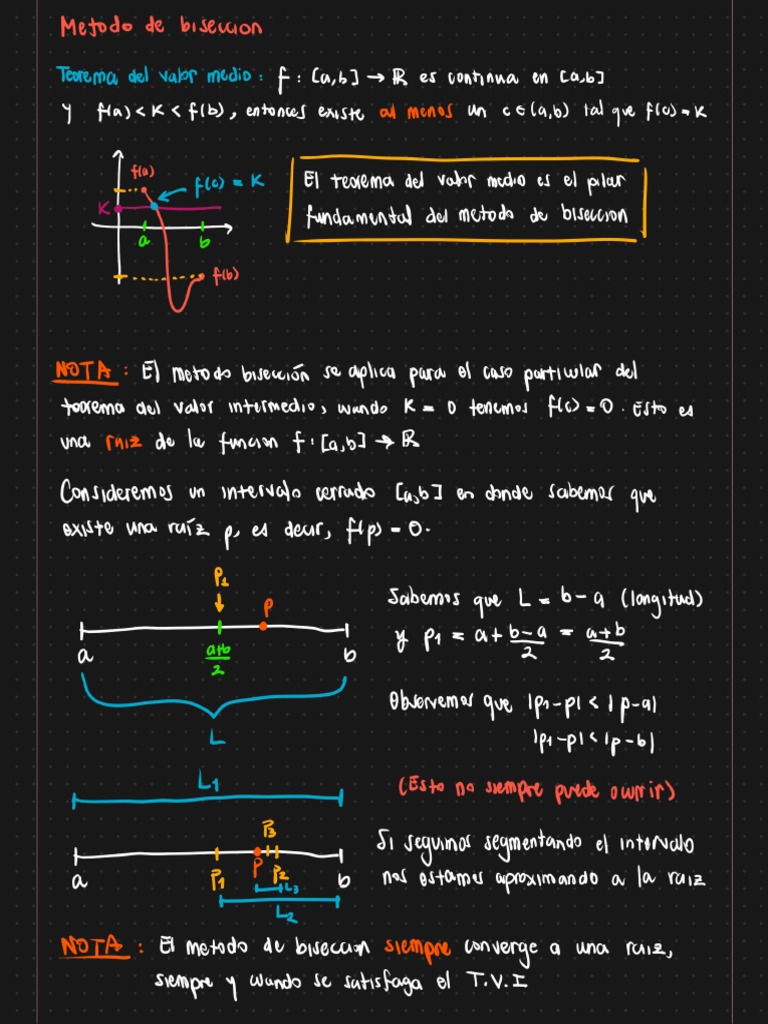 Metodo de biseccion
Teorema del valor medio: f : [a,b] → ℝ es continua en [a,b]
y f(a) < K < f(b), entonces existe al menos un c ∈ (a,b) tal que f(c) = K
f(a)
f(c) = K
K
a
b
f(b)
El teorema del valor medio es el pilar
fundamental del metodo de biseccion
NOTA: El metodo bisección se aplica para el caso particular del
teorema del valor intermedio, cuando K = 0 tenemos f(c) = 0. Esto es
una raiz de la funcion f : [a,b] → ℝ
Consideremos un intervalo cerrado [a,b] en donde sabemos que
existe una raíz p, es decir, f(p) = 0.
P1
P
a
a+b/2
b
L
Sabemos que L = b - a (longitud)
y p1 = a + b-a/2 = a+b/2
Observemos que |p1-p| < |p-a|
|p1-p| < |p-b|
(Esto no siempre puede ocurrir)
L1
P3
a
P1
P
P2
b
L3
L2
Si seguimos segmentando el intervalo
nos estamos aproximando a la raiz
NOTA: El metodo de biseccion siempre converge a una raiz,
siempre y cuando se satisfaga el T.V.I